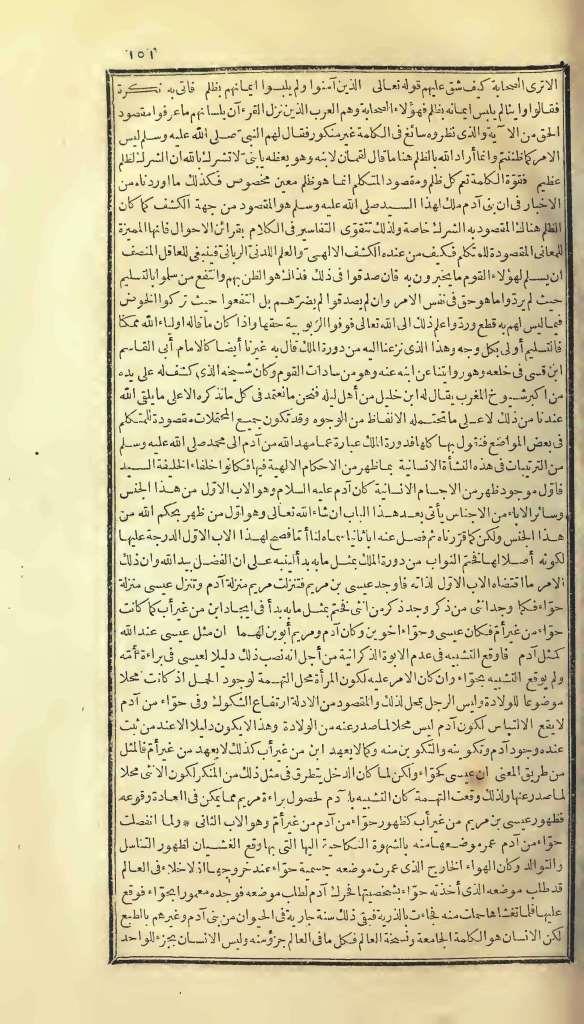 ١٥١
الا ترى الصحابة كيف شق عليهم قوله تعالى الذين آمنوا ولم يلبسوا ايمانهم بظلم فاتى به نكرة
فقالوا وأينا لم يلبس ايمانه بظلم فهؤلاء الصحابة وهم العرب الذين نزل القرءآن بلسانهم ما عرفوا مقصود
الحق من الآية والذى نظروه سائغ فى الكلمة غير منكور فقال لهم النبى صلى الله عليه وسلم ليس
الامر كما ظننتم وانما أراد الله بالظلم هنا ما قال لقمان لابنه وهو يعظه يا بنى لا تشرك بالله ان الشرك لظلم
عظيم فقوّة الكلمة تعم كل ظلم ومقصود المتكلم انما هو ظلم معين مخصوص فكذلك ما أوردناه من
الاخبار فى ان بنى آدم ملك لهذا السيد صلى الله عليه وسلم هو المقصود من جهة الكشف كما كان
الظلم هناك المقصود به الشرك خاصة ولذلك تتقوى التفاسير فى الكلام بقرائن الاحوال فانها المميزة
للمعانى المقصودة للمتكلم فكيف من عنده الكشف الالهى والعلم اللدنى الربانى فينبغى للعاقل المنصف
ان يسلم لهؤلاء القوم ما يخبرون به فان صدقوا فى ذلك فذاك هو الظن بهم وانتفع من سلموا بالتسليم
حيث لم يردّوا ما هو حق فى نفس الامر وان لم يصدقوا لم يضرّهم بل انتفعوا حيث تركوا الخوض
فيما ليس لهم به قطع وردّوا علم ذلك الى الله تعالى فوفوا الربوبية حقها واذا كان ما قاله اولياء الله ممكنا
فالتسليم أولى بكل وجه وهذا الذى نزعنا اليه من دورة الملك قال به غيرنا أيضا كالامام أبى القاسم
ابن قسى فى خلعه وهو روايتنا عن ابنه عنه وهو من سادات القوم وكان شيخه الذى كشف له على يده
من اكبر شيوخ المغرب يقال له ابن خليل من أهل لبله فنحن ما نعتمد فى كل ما نذكره الا على ما يلقى الله
عندنا من ذلك لا على ما تحتمله الالفاظ من الوجوه وقد تكون جميع المحتملات مقصودة للمتكلم
فى بعض المواضع فنقول بها كلها فدورة الملك عبارة عما مهد الله من آدم الى محمد صلى الله عليه وسلم
من الترتيبات فى هذه النشأة الانسانية بما ظهر من الاحكام الالهية فيها فكانوا خلفاء الخليفة السيد
فاوّل موجود ظهر من الاجسام الانسانية كان آدم عليه السلام وهو الاب الاوّل من هذا الجنس
وسائر الاباء من الاجناس يأتى بعد هذا الباب ان شاء الله تعالى وهو اوّل من ظهر بحكم الله من
هذا الجنس ولكن كما قرّرناه ثم فصل عنه أبا ثانيا لنا سماه لنا أمّا فصح لهذا الاب الاوّل الدرجة عليها
لكونه أصلا لها فختم النواب من دورة الملك بمثل ما به بدأ لينبه على ان الفضل بيد الله وان ذلك
الامر ما اقتضاه الاب الاول لذاته فاوجد عيسى بن مريم فتنزلت مريم منزلة آدم وتنزل عيسى منزلة
حوّاء فكما وجد انثى من ذكر وجد ذكر من انثى نختم بمثل ما به بدأ فى ايجاد ابن من غير أب كما كانت
حوّاء من غير أمّ فكان عيسى وحوّاء اخوين وكان آدم ومريم أبوين لهما ان مثل عيسى عند الله
كمثل آدم فاوقع التشبيه فى عدم الابوة الذكرانية من أجل انه نصب ذلك دليلا لعيسى فى براءة أمّه
ولم يوقع التشبيه بحوّاء وان كان الامر عليه لكون المرأة محل التهمة لوجود الحمل اذ كانت محلا
موضوعا للولادة وليس الرجل بمحل لذلك والمقصود من الادلة ارتفاع الشكوك وفى حوّاء من آدم
لا يقع الالتباس لكون آدم ليس محلا لما صدر عنه من الولادة وهذا لا يكون دليلا الا عند من ثبت
عنده وجود آدم وتكوينه والتكوين منه وكما لا يعهد ابن من غير أب كذلك لا يعهد من غير أمّ فالمثل
من طريق المعنى ان عيسى كحوّاء ولكن لما كان الدخل يتطرق فى مثل ذلك من المنكر لكون الانثى محلا
لما صدر عنها ولذلك وقعت التهمة كان التشبيه بآدم لحصول براءة مريم مما يمكن فى العادة وقوعه
فظهور عيسى بن مريم من غير أب كظهور حوّاء من آدم من غير أمّ وهو الاب الثانى * ولما انفصلت
حوّاء من آدم عمر موضعها منه بالشهوة النكاحية اليها التى بها وقع الغشيان لظهور التناسل
والتوالد وكان الهواء الخارج الذى عمرت موضعه جسمية حوّاء عند خروجها اذ لا خلاء فى العالم
قد طلب موضعه الذى أخذته حوّاء بشخصيتها فحرك آدم لطلب موضعه فوجده معمورا بحوّاء فوقع
عليها فلما تغشاها حملت منه فجاءت بالذرية فبقى ذلك سنة جارية فى الحيوان من بنى آدم وغيرهم بالطبع
لكن الانسان هو الكلمة الجامعة ونسخة العالم فكل ما فى العالم جزؤ منه وليس الانسان بجزء للواحد